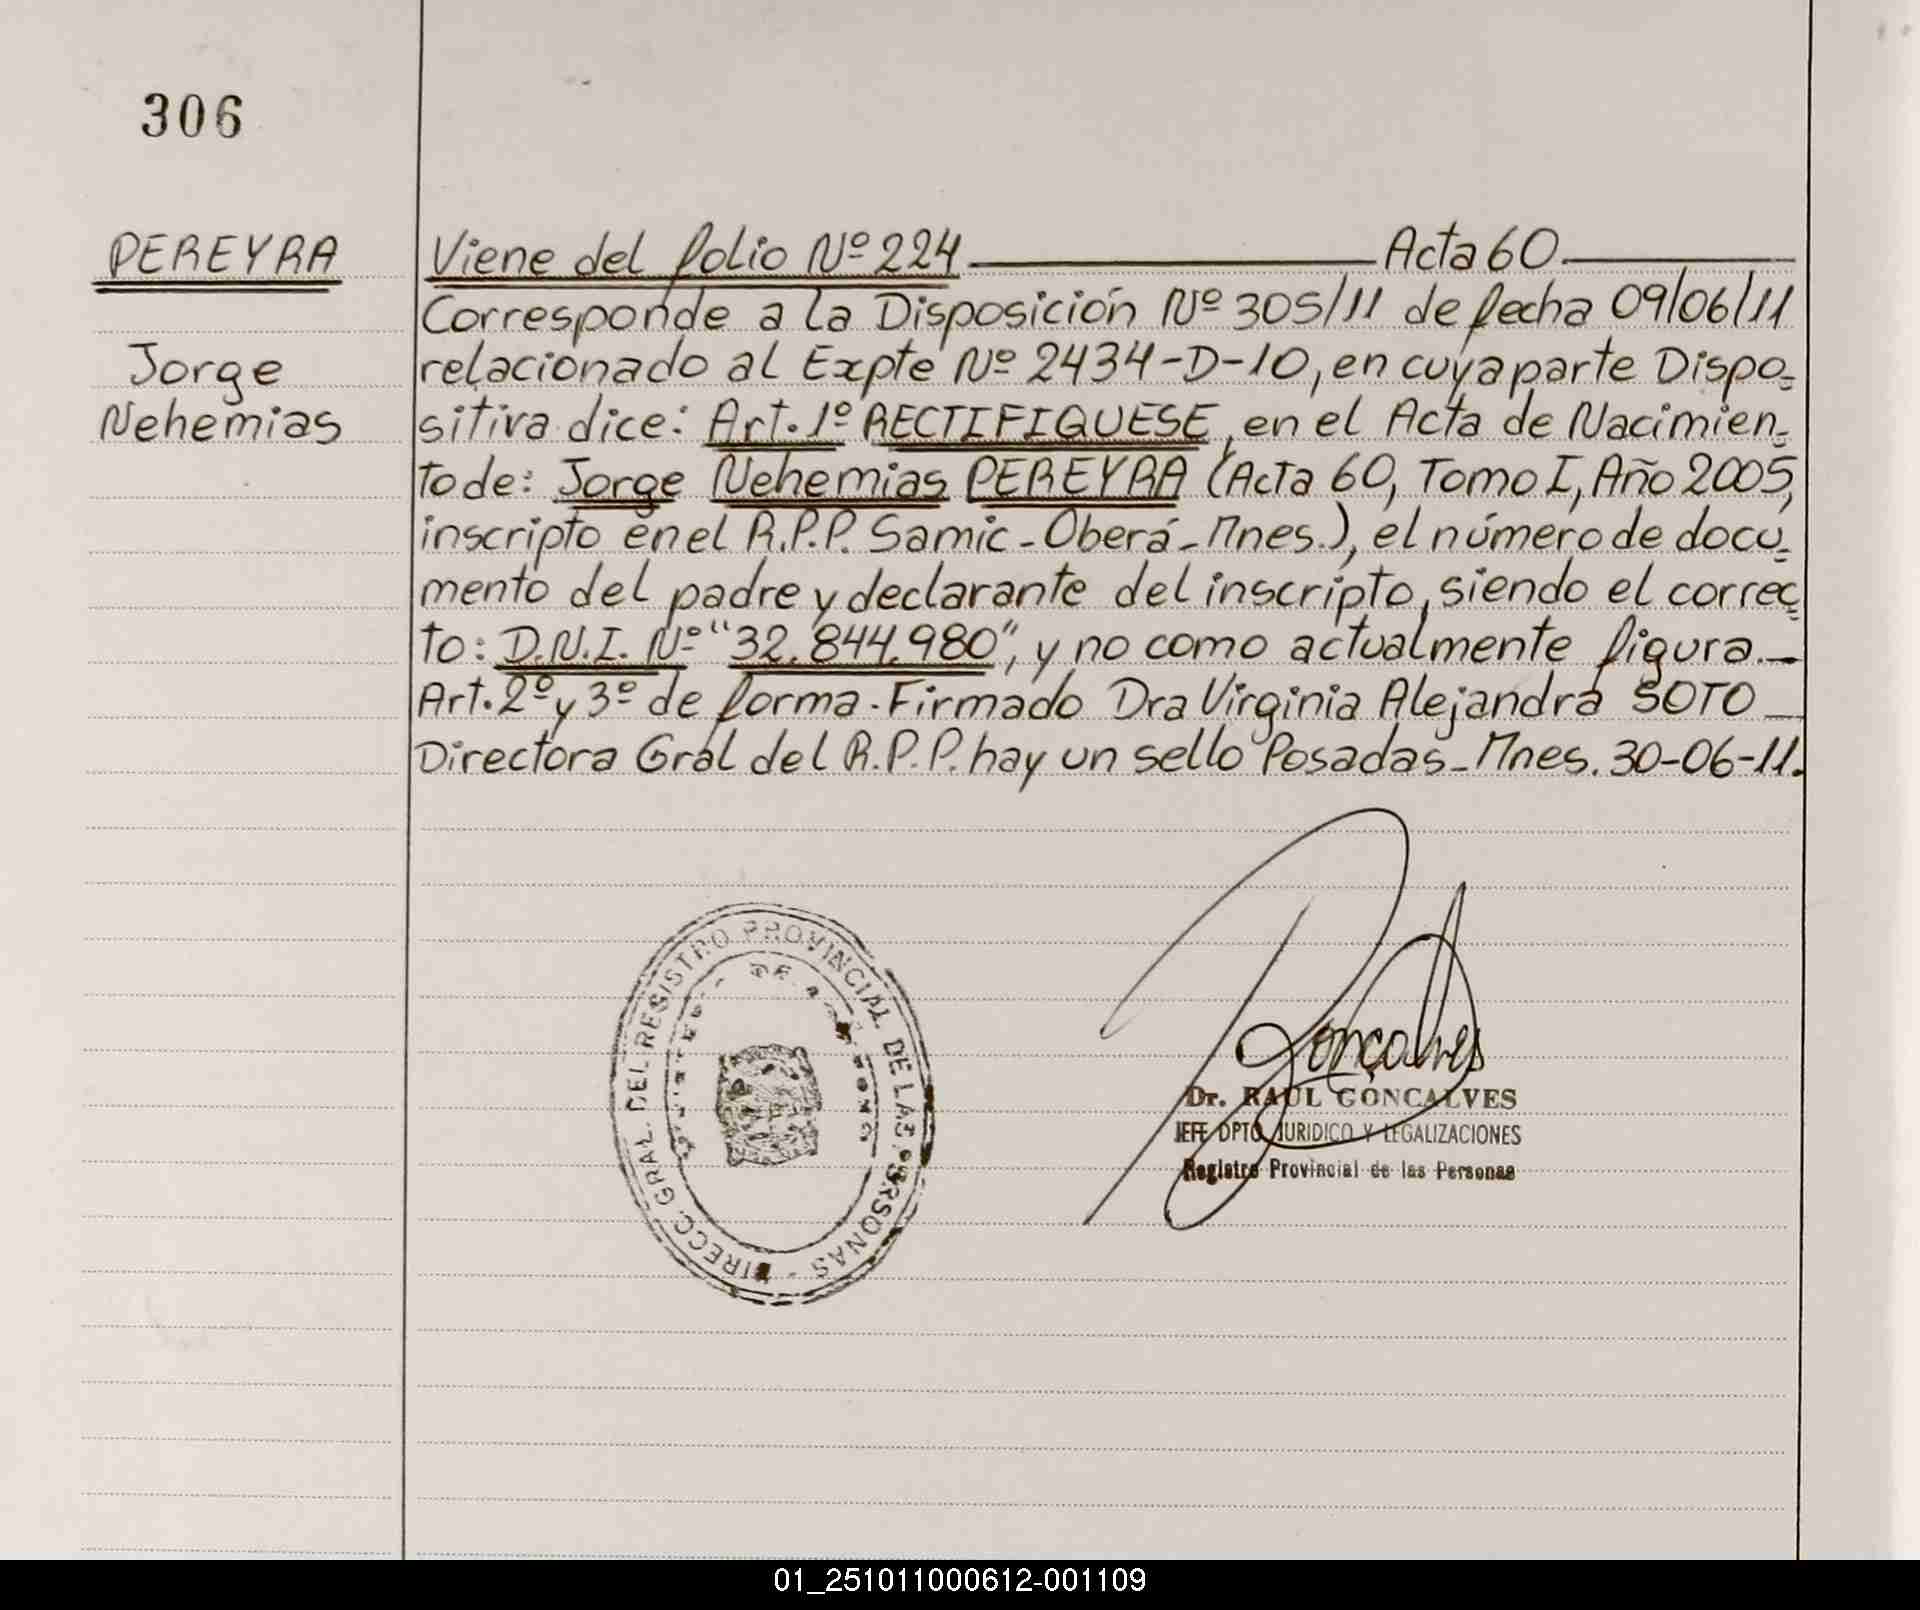 306
PEREYRA
Jorge
Nehemias
Viene del folio Nº 224 Acta 60
Corresponde a la Disposición Nº 305/11 de fecha 09/06/11
relacionado al Expte Nº 2434-D-10, en cuya parte Dispo-
sitiva dice: Art. 1º RECTIFIQUESE, en el Acta de Nacimien-
to de: Jorge Nehemias PEREYRA (Acta 60, Tomo I, Año 2005,
inscripto en el R.P.P. Samic - Oberá - Mnes.), el número de docu-
mento del padre y declarante del inscripto, siendo el correc-
to: D.N.I. Nº "32.844.980", y no como actualmente figura.-
Art. 2º y 3º de forma. Firmado Dra Virginia Alejandra SOTO
Directora Gral del R.P.P. hay un sello Posadas - Mnes. 30-06-11.
DIRECC. GRAL. DEL REGISTRO PROVINCIAL DE LAS PERSONAS -
DE
Gonçalves
Dr. RAUL GONCALVES
JEFE DPTO. JURIDICO Y LEGALIZACIONES
Registro Provincial de las Personas
01_251011000612-001109